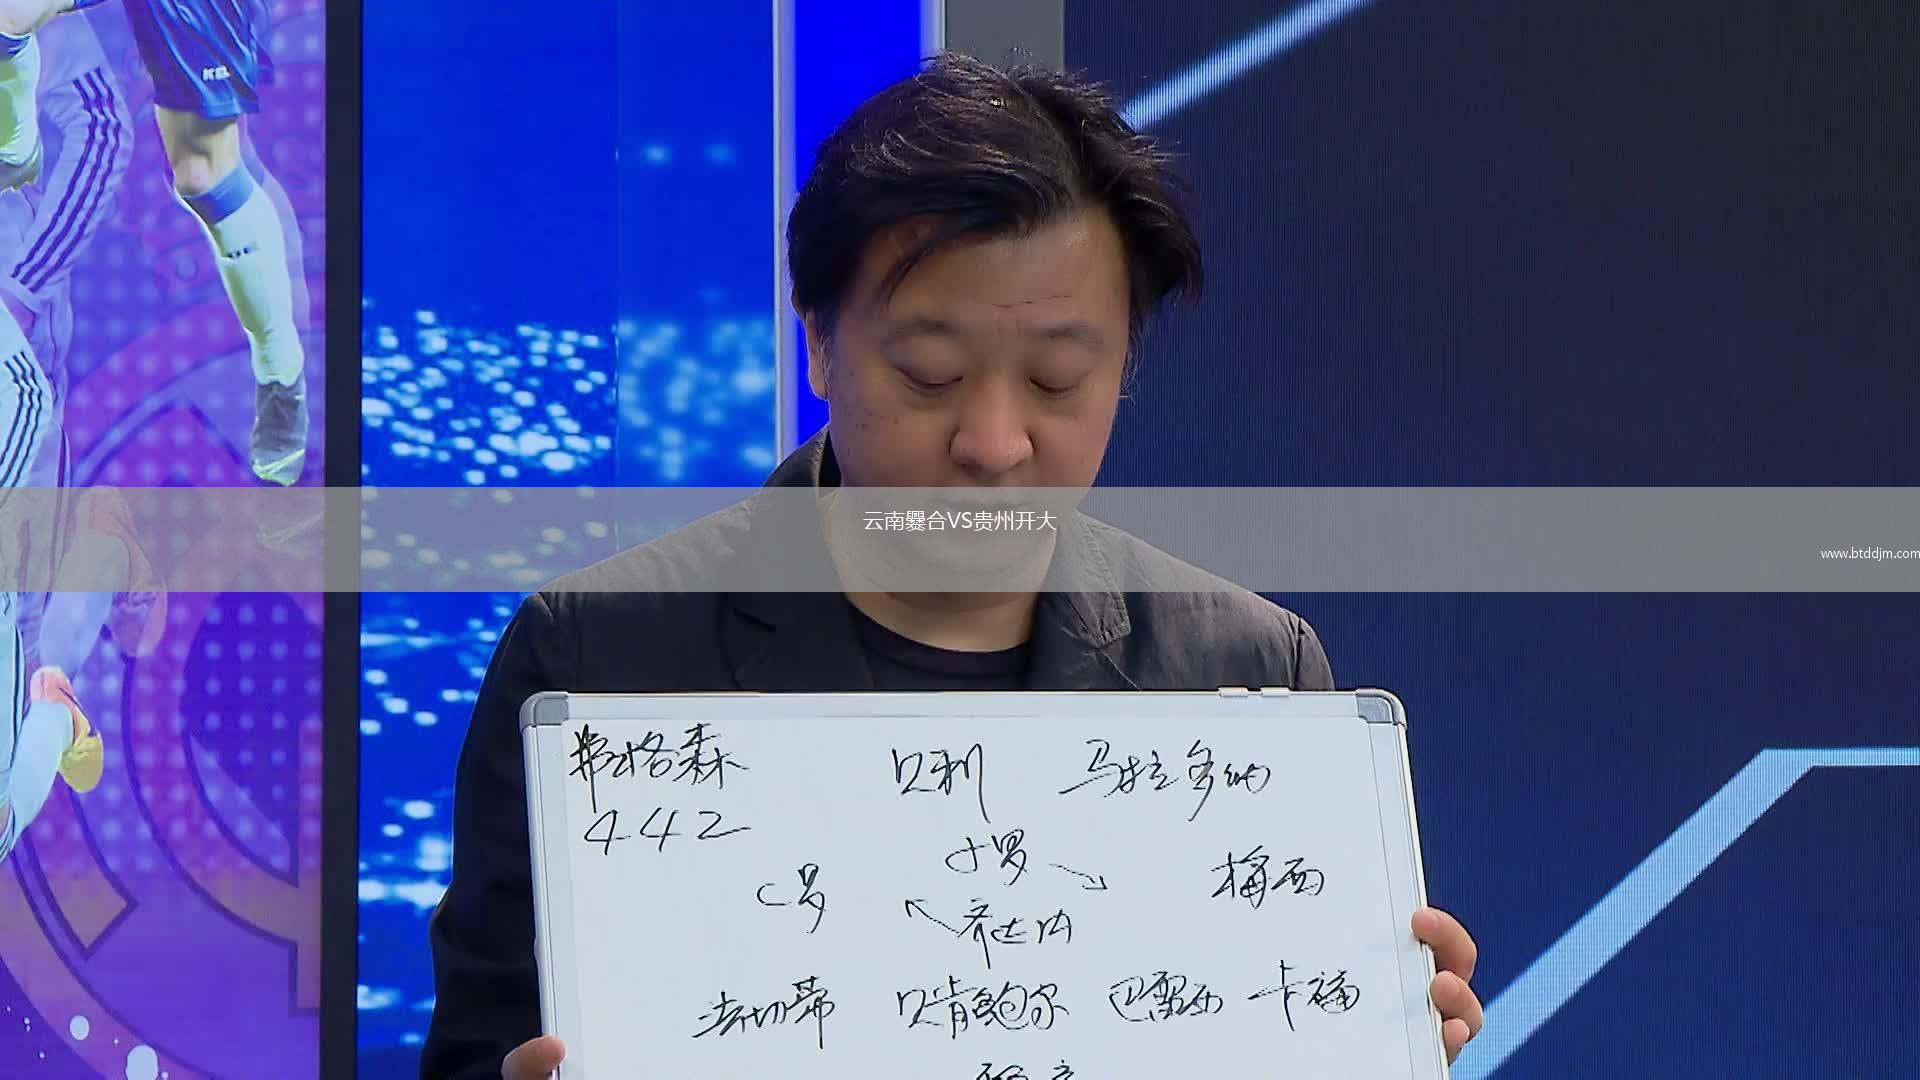 KEL
云南爨合VS贵州开大
www.btddjm.com
弗格森 贝利 马拉多纳
442
小罗
C罗 梅西
齐达内
法切蒂 贝肯鲍尔 巴雷西 卡福